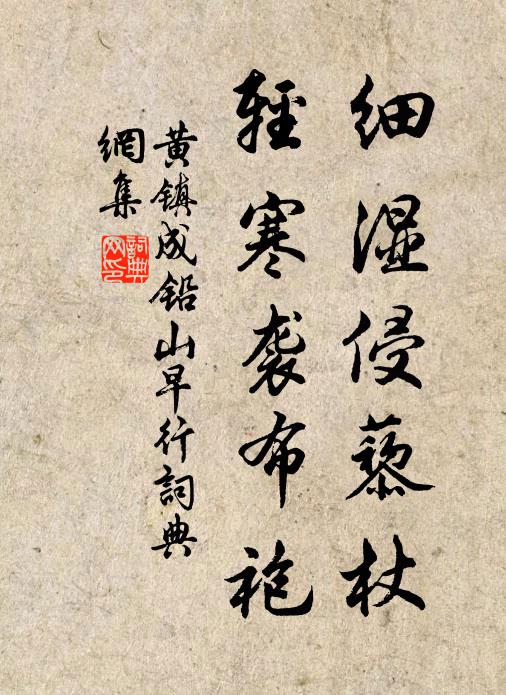 细湿侵藜杖
轻寒袭布袍
黄镇成铅山早行词典
网集
词典网印